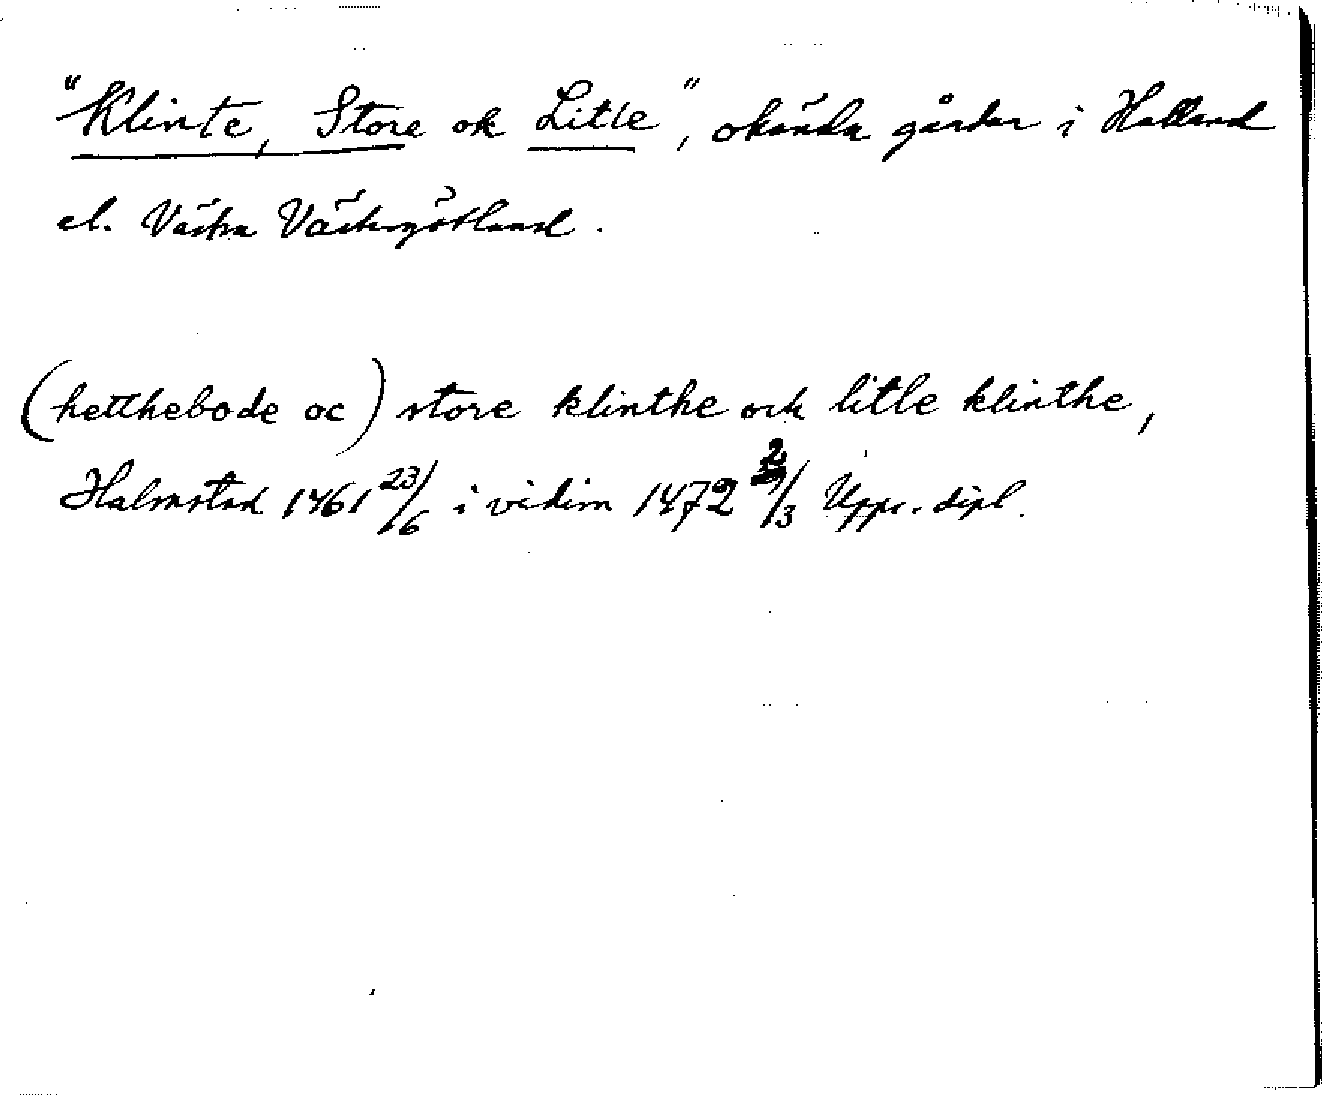 "Klinte, Store ok Litle", okända gårdar i Halland
el. Västra Västergötland.
(hetthebode oc) store klinthe och litle klinthe,
Halmstad 1461 23/6 i vidim 1472 2/3 Upps. dipl.